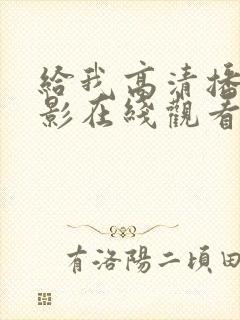 給我高清播
影在綫觀看
有洛陽二頃田